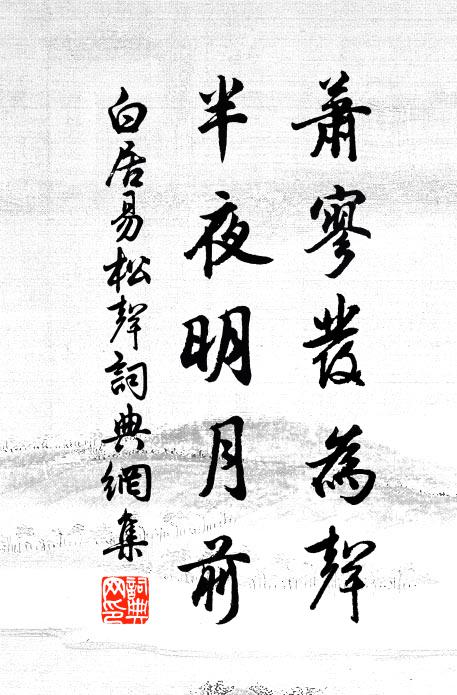 蕭寥發為聲
半夜明月前
白居易松聲詞典網集
詞典
网印